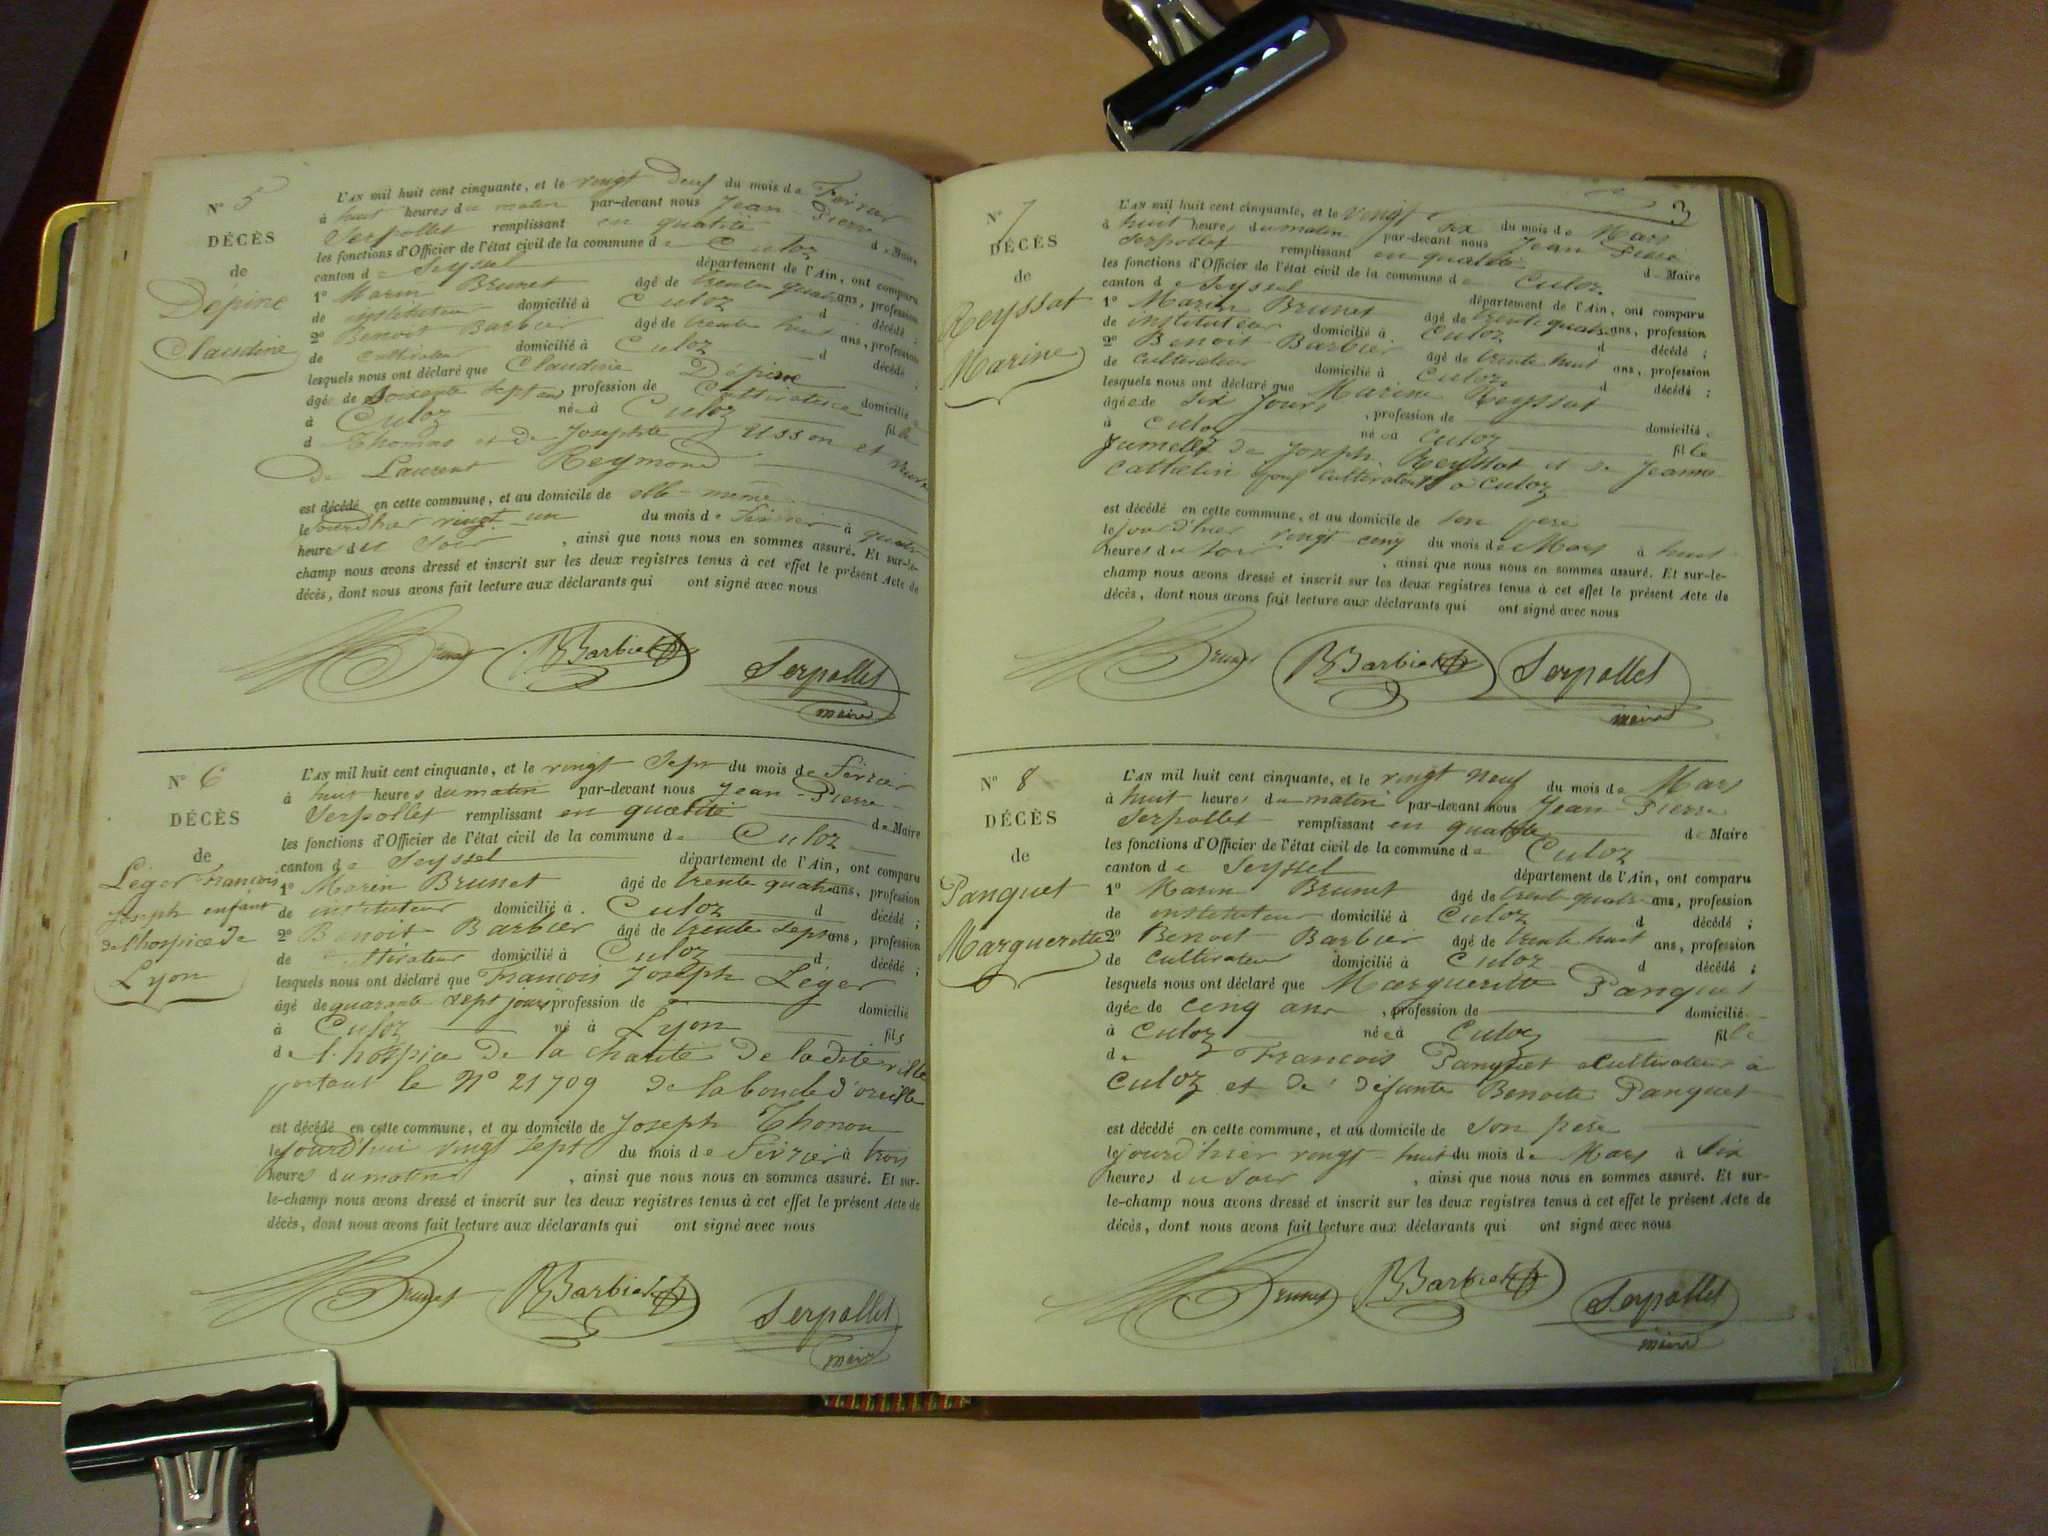 N° 5
DÉCÈS
de
Dépine
Claudine
L'AN mil huit cent cinquante, et le vingt Deux du mois de Février
à huit heures du matin par-devant nous Jean-Pierre
Serpollet remplissant en qualité de Maire
les fonctions d'Officier de l'état civil de la commune de Culoz
canton de Seyssel département de l'Ain, ont comparu
1° Marin Brunet âgé de trente quatre ans, profession
de instituteur domicilié à Culoz d décédé ;
2° Benoit Barbier âgé de trente huit ans, profession
de cultivateur domicilié à Culoz d décédé ;
lesquels nous ont déclaré que Claudine Dépine
âgée de soixante sept ans, profession de Cultivatrice domiciliée
à Culoz née à Culoz fille
d Thomas et de Josephte Usson et veuve
De Laurent Reymond
est décédé en cette commune, et au domicile de elle-même
le jourd'hier vingt-un du mois de Février à quatre
heures du soir, ainsi que nous nous en sommes assuré. Et sur-le-
champ nous avons dressé et inscrit sur les deux registres tenus à cet effet le présent Acte de
décès, dont nous avons fait lecture aux déclarants qui ont signé avec nous
Brunet BBarbier Serpollet
maire
N° 6
DÉCÈS
de
Léger François
Joseph enfant
de l'hospice de
Lyon
L'AN mil huit cent cinquante, et le vingt Sept du mois de Février
à huit heures du matin par-devant nous Jean-Pierre
Serpollet remplissant en qualité de Maire
les fonctions d'Officier de l'état civil de la commune de Culoz
canton de Seyssel département de l'Ain, ont comparu
1° Marin Brunet âgé de trente quatre ans, profession
de instituteur domicilié à Culoz d décédé ;
2° Benoit Barbier âgé de trente sept ans, profession
de cultivateur domicilié à Culoz d décédé ;
lesquels nous ont déclaré que François Joseph Léger
âgé de quarante sept jours profession de domicilié
à Culoz né à Lyon fils
de l'hospice de la charité de ladite ville
portant le N° 21709 de la boucle d'oreille
est décédé en cette commune, et au domicile de Joseph Thonon
le jourd'hui vingt sept du mois de Février à trois
heures du matin, ainsi que nous nous en sommes assuré. Et sur-
le-champ nous avons dressé et inscrit sur les deux registres tenus à cet effet le présent Acte de
décès, dont nous avons fait lecture aux déclarants qui ont signé avec nous
Brunet BBarbier Serpollet
maire
3
N° 7
DÉCÈS
de
Reyssat
Marine
L'AN mil huit cent cinquante, et le vingt six du mois de Mars
à huit heures du matin par-devant nous Jean Pierre
Serpollet remplissant en qualité de Maire
les fonctions d'Officier de l'état civil de la commune de Culoz
canton de Seyssel département de l'Ain, ont comparu
1° Marin Brunet âgé de trente quatre ans, profession
de instituteur domicilié à Culoz d décédé ;
2° Benoit Barbier âgé de trente huit ans, profession
de cultivateur domicilié à Culoz d décédé ;
lesquels nous ont déclaré que Marine Reyssat
âgée de six jours, profession de domicilié
à Culoz née à Culoz fille
Jumelle de Joseph Reyssat et de Jeanne
Cathelin cultivateurs à Culoz
est décédé en cette commune, et au domicile de son père
le jourd'hier vingt-cinq du mois de Mars à huit
heures du soir, ainsi que nous nous en sommes assuré. Et sur-le-
champ nous avons dressé et inscrit sur les deux registres tenus à cet effet le présent Acte de
décès, dont nous avons fait lecture aux déclarants qui ont signé avec nous
Brunet BBarbier Serpollet
maire
N° 8
DÉCÈS
de
Panquet
Margueritte
L'AN mil huit cent cinquante, et le vingt neuf du mois de Mars
à huit heures du matin par-devant nous Jean-Pierre
Serpollet remplissant en qualité de Maire
les fonctions d'Officier de l'état civil de la commune de Culoz
canton de Seyssel département de l'Ain, ont comparu
1° Marin Brunet âgé de trente quatre ans, profession
de instituteur domicilié à Culoz d décédé ;
2° Benoit Barbier âgé de trente huit ans, profession
de cultivateur domicilié à Culoz d décédé ;
lesquels nous ont déclaré que Margueritte Panquet
âgée de cinq ans, profession de domicilié
à Culoz née à Culoz fille
de François Panquet cultivateur à
Culoz et de défunte Benoite Panquet
est décédé en cette commune, et au domicile de son père
le jourd'hier vingt-huit du mois de Mars à six
heures du soir, ainsi que nous nous en sommes assuré. Et sur-
le-champ nous avons dressé et inscrit sur les deux registres tenus à cet effet le présent Acte de
décès, dont nous avons fait lecture aux déclarants qui ont signé avec nous
Brunet BBarbier Serpollet
maire